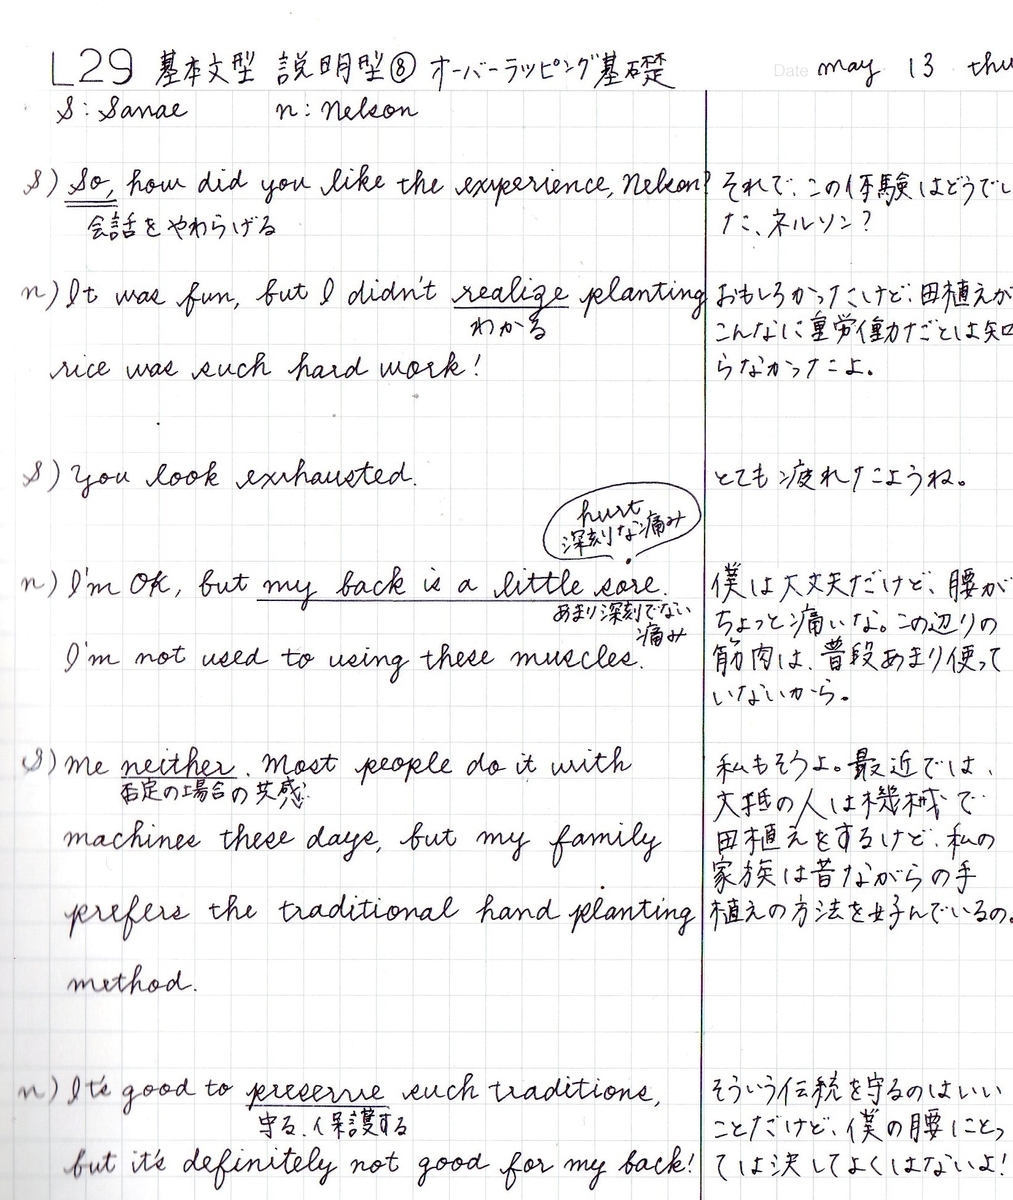 L29 基本文型 説明型⑧ オーバーラッピング基礎 Date may 13 thu
S: Sanae n: Nelson
S) So, how did you like the experience, Nelson? それで、この体験はどうでし
会話をやわらげる た、ネルソン?
n) It was fun, but I didn't realize planting おもしろかったけど、田植えが
わかる こんなに重労働だとは知
rice was such hard work! らなかったよ。
S) You look exhausted. とても疲れたようね。
hurt
深刻な痛み
n) I'm OK, but my back is a little sore. 僕は大丈夫だけど、腰が
あまり深刻でない ちょっと痛いな。この辺りの
痛み
I'm not used to using these muscles. 筋肉は、普段あまり使って
いないから。
S) Me neither. Most people do it with 私もそうよ。最近では、
否定の場合の共感 大抵の人は機械で
machines these days, but my family 田植えをするけど、私の
家族は昔ながらの手
prefers the traditional hand planting 植えの方法を好んでいるの。
method.
n) It's good to preserve such traditions, そういう伝統を守るのはいい
守る、保護する ことだけど、僕の腰にとっ
but it's definitely not good for my back! ては決してよくはないよ!